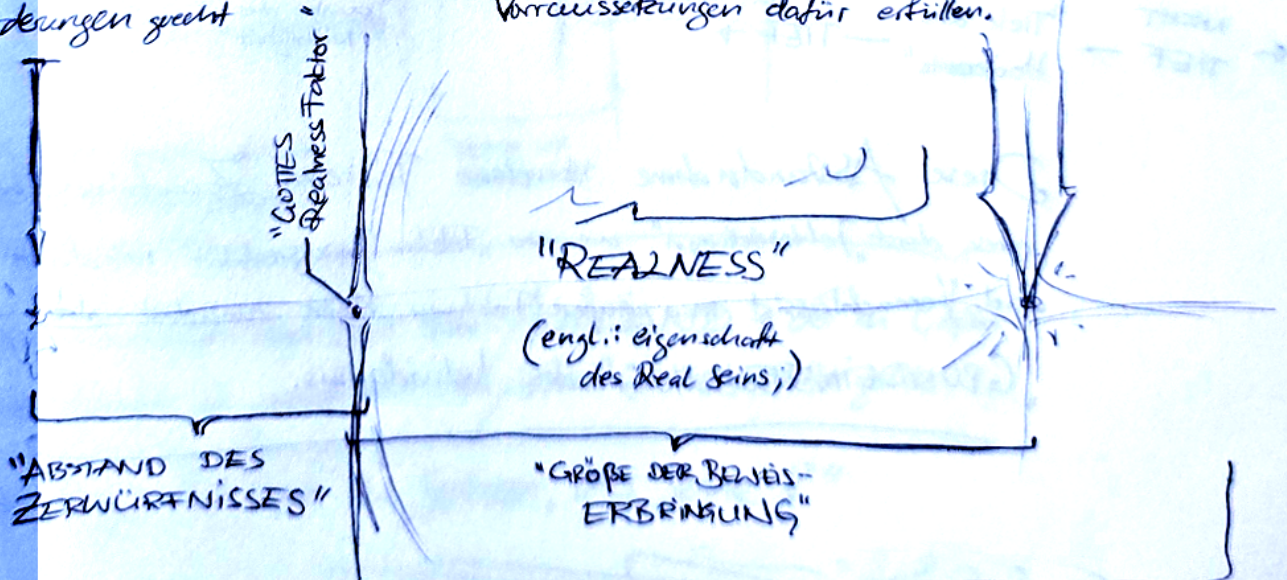 derungen gerecht
Vorraussetzungen dafür erfüllen.
"GOTTES
Realness Faktor"
"REALNESS"
(engl.: eigenschaft
des Real Seins,)
"ABSTAND DES
ZERWÜRFNISSES"
"GRÖßE DER BEWEIS-
ERBRINGUNG"